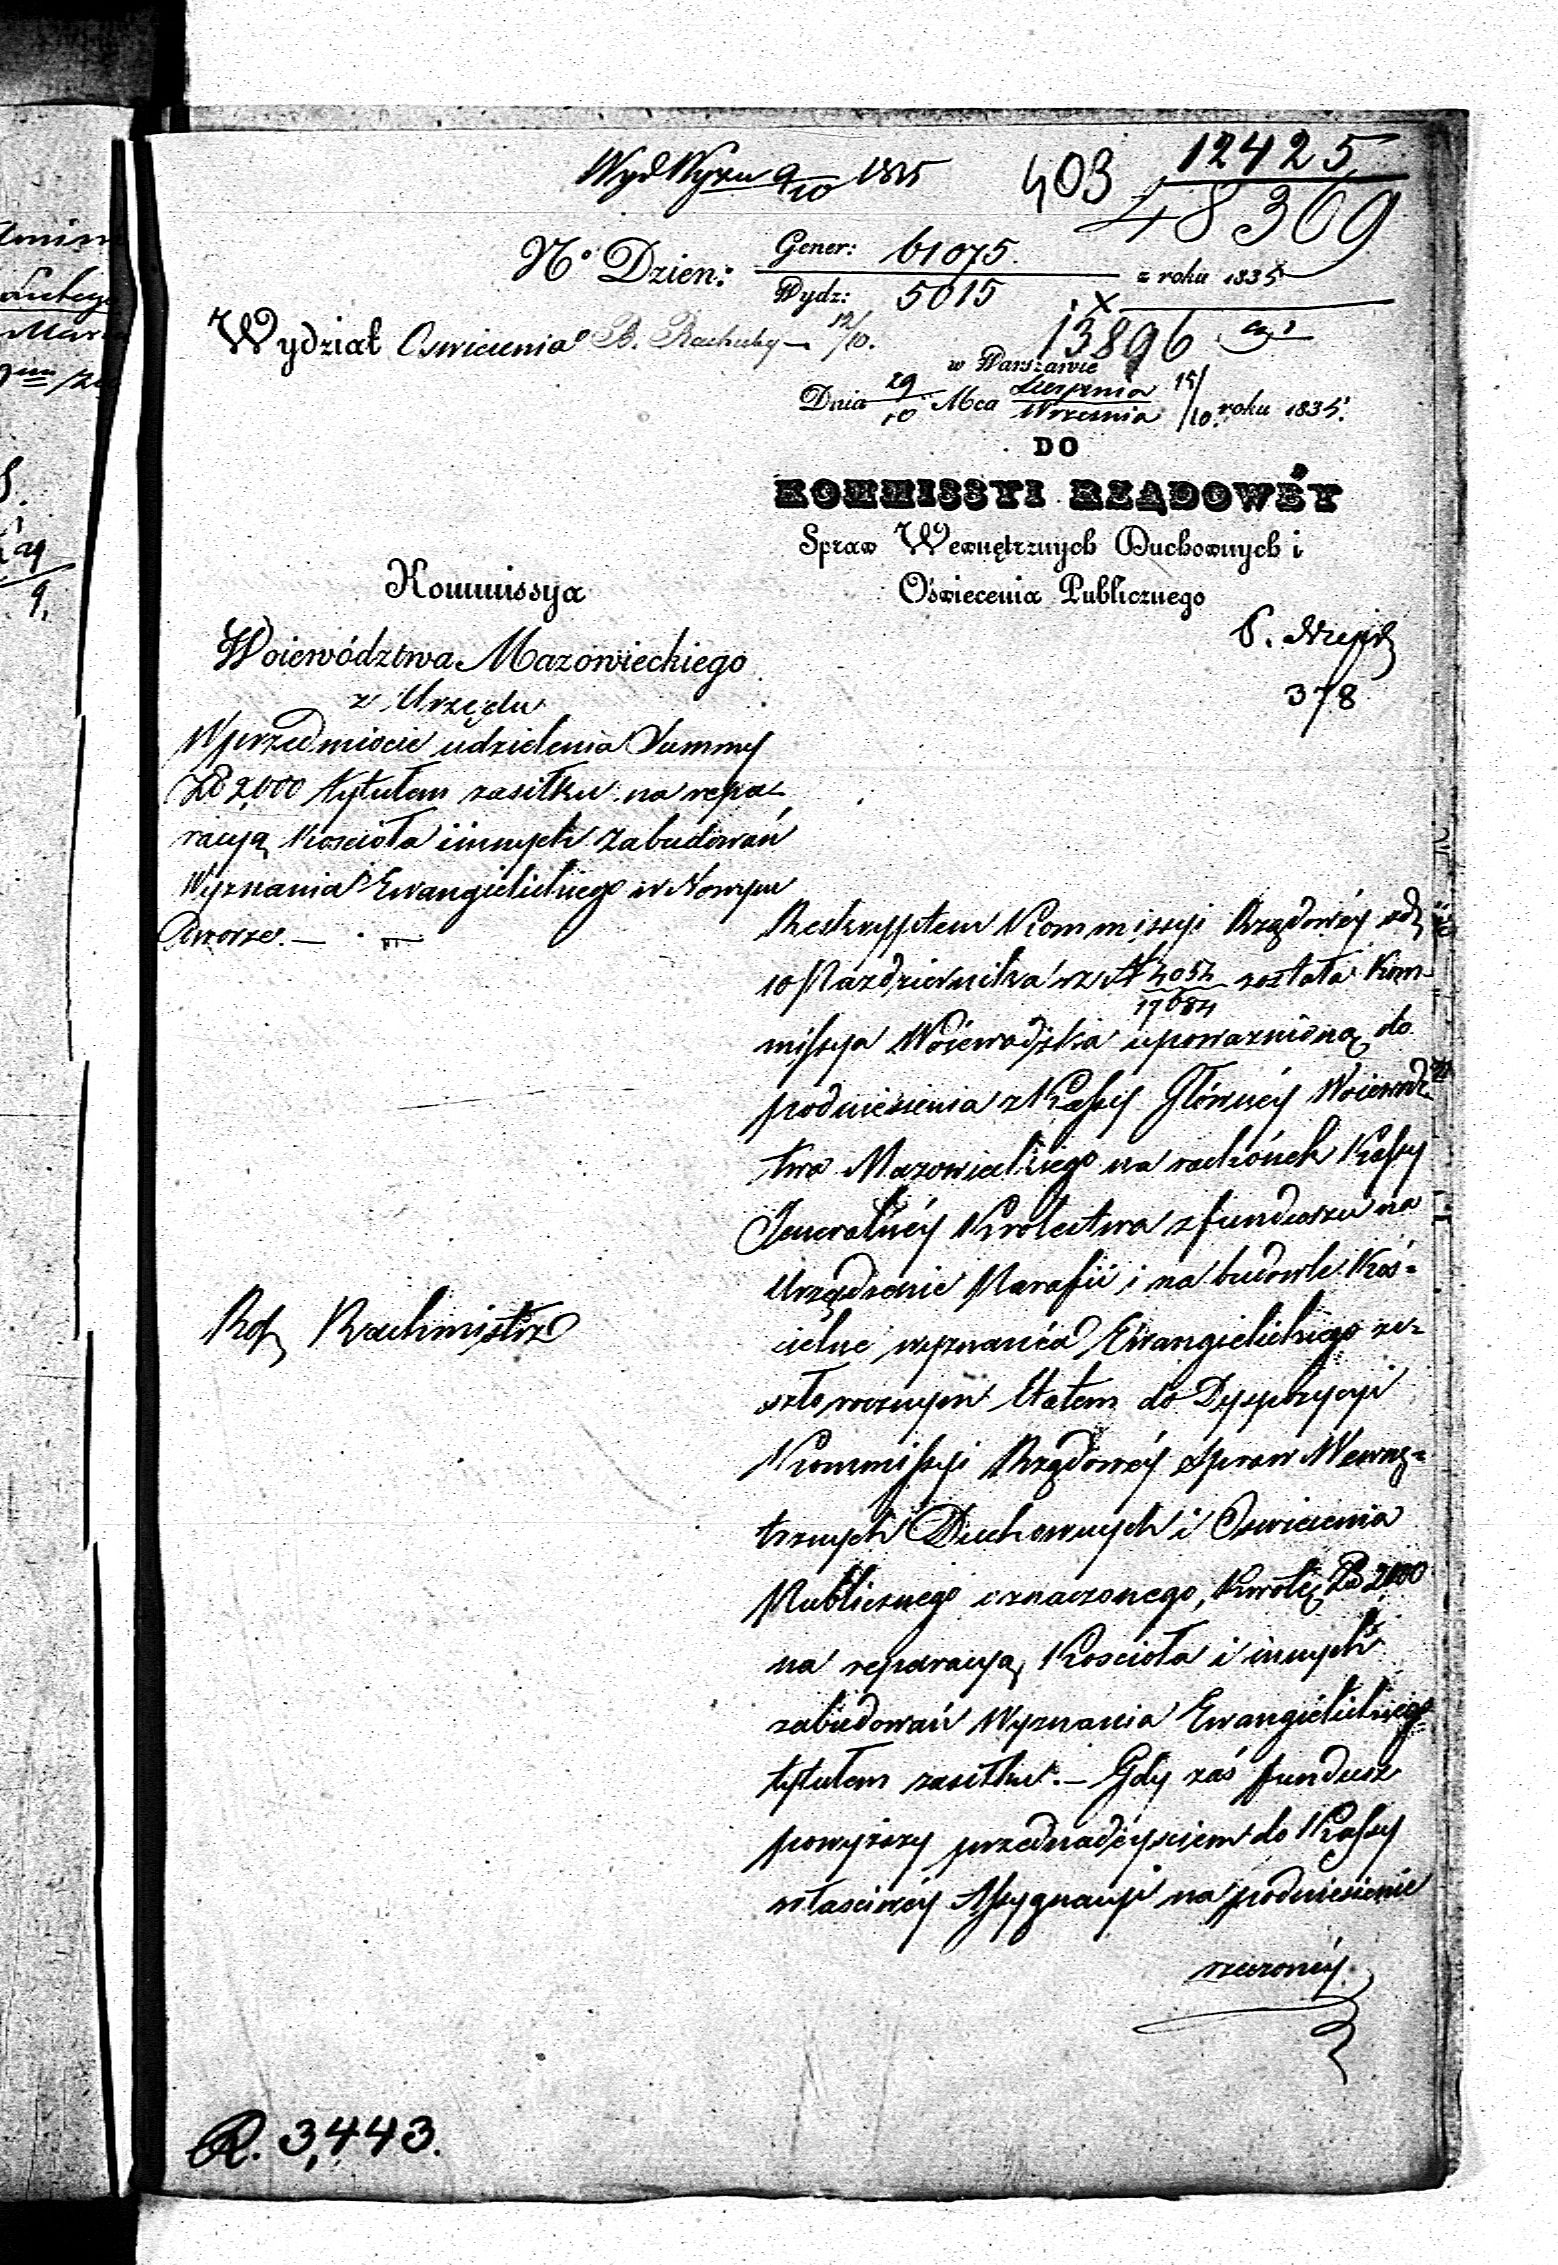 Wyd Wyzn 9/10 1835
403
12425
48369
No Dzien: Gener: 61075.
Wydz: 5015
z roku 1835
Wydział Oswiecenia B. Rachuby 12/10.
13896
w Warszawie
Dnia 29/10 Mca Sierpnia/Wrzesnia 15/10. roku 1835.
DO
KOMMISSYI RZĄDOWÉY
Spraw Wewnętrznych Duchownych i
Oświecenia Publicznego
Kommissya
Woiewództwa Mazowieckiego
z Urzędu
378
W przedmiocie udzielenia Summy
Zł 2,000 tytułem zasiłku na repa-
racyą Koscioła i innych Zabudowań
Wyznania Ewangielickiego w Nowym
Dworze. —
Reskryptem Kommissyi Rządowéy zd
10 Pazdziernika rz N 4052/17684 została Kom-
missya Woiewodzka upowazniona do
podniesienia z Kassy Głównéy Woiewodz
twa Mazowieckiego na rachunek Kassy
Jeneralnéy Krolestwa z funduszu na
Urządzenie Parafii i na budowle Koś-
cielne wyznania Ewangielickiego ze-
szłorocznym Etatem do Dyspozycyi
Kommissyi Rządowéy Spraw Wewnę-
trznych Duchownych i Oswiecenia
Publicznego oznaczonego, Kwotę Zł 2000
na reparacyą Koscioła i innych
zabudowań Wyznania Ewangielickiego
tytułem zasiłku. — Gdy zaś fundusz
powyższy przed nadeysciem do Kassy
właściwéy Assygnacyi na podniesienie
rzeczonéy
Rachmistrz
R. 3,443.